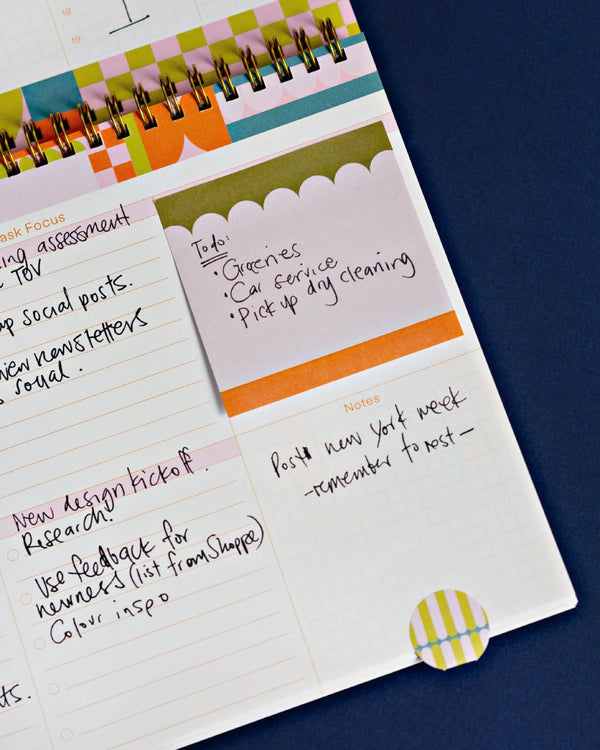 18
19
Task Focus
assessment
TOV
up social posts.
newsletters
social.
To do:
• Groceries
• Car service
• Pick up dry cleaning
Notes
Post new york week
- remember to rest -
New design kickoff.
Research.
Use feedback for
newness (list from Shoppe)
Colour inspo